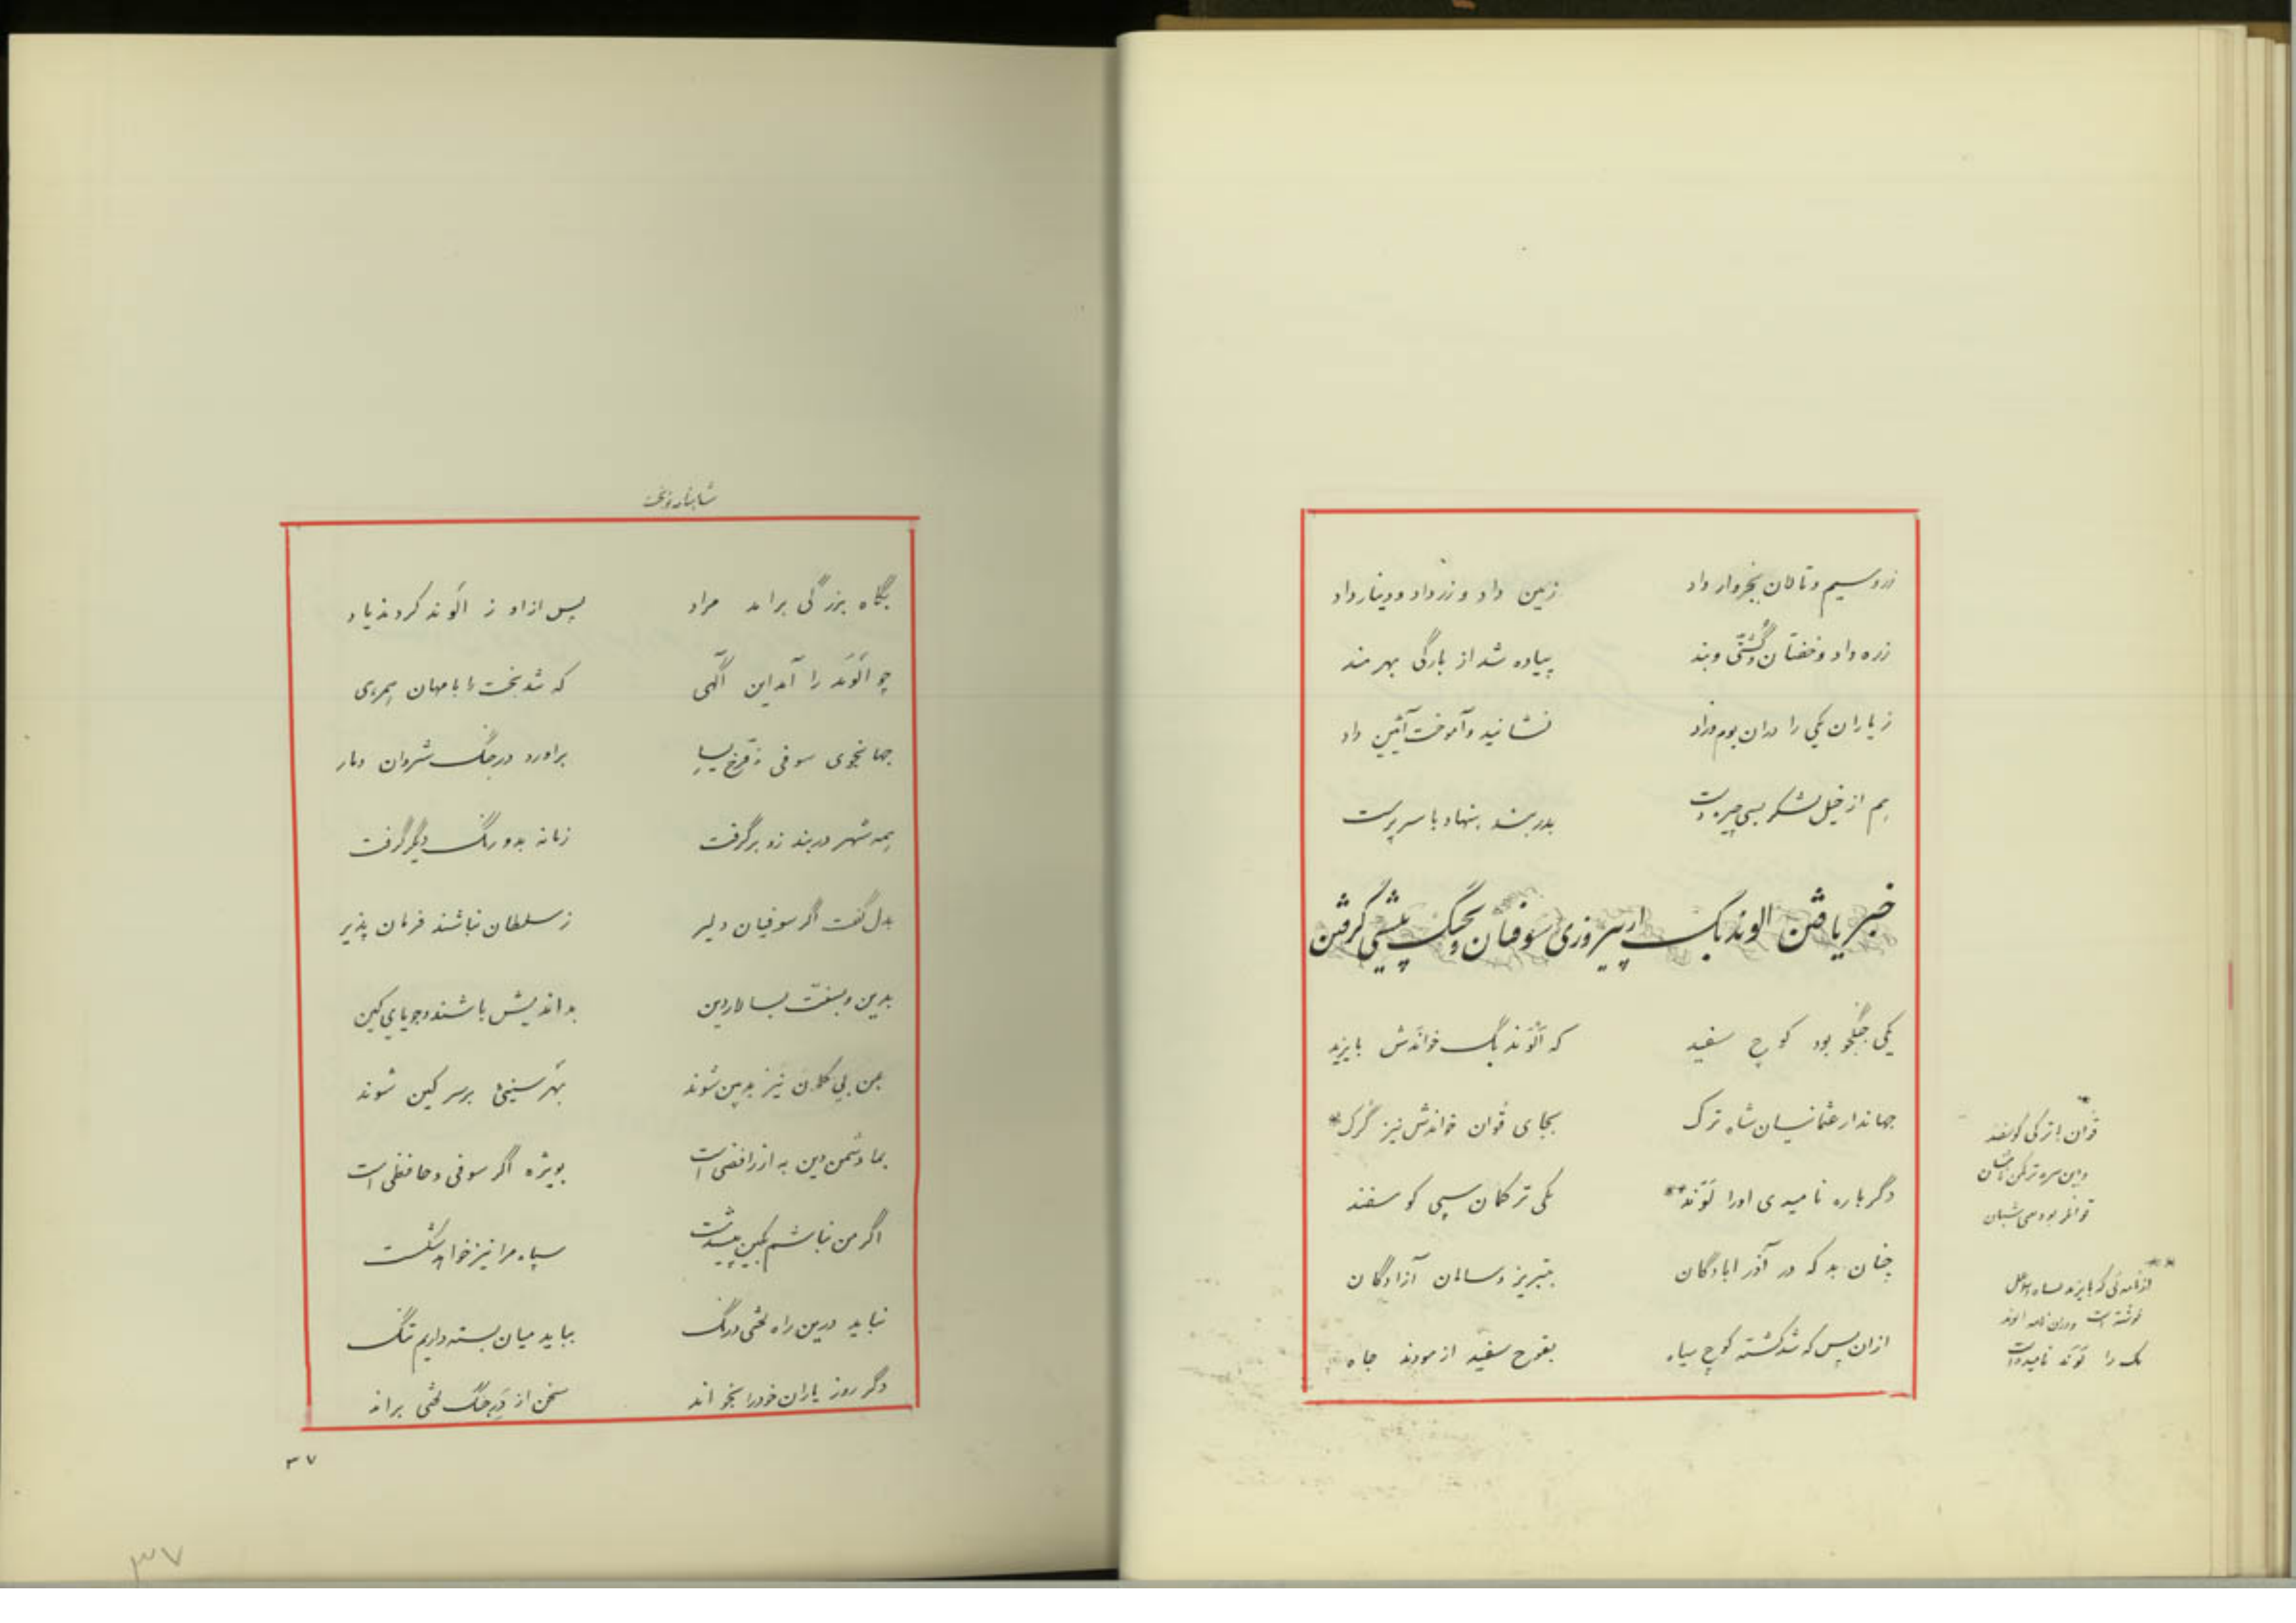 زر و سیم و تالان بخروار داد    زمین داد و زر داد و دینار داد
زره داد و خفتان و گشتی و بند    پیاده شد از بارگی بهرمند
ز یاران یکی را دران بوم و راد    نشانید و آموخت آئین داد
هم از خیل لشکر بسی چیره دست    بدربند بنهاد با سرپرست
خبر یافتن الوند بک از پیروزی سوفیان و بجنگ پیشی گرفتن
یکی جنگجو بود کوچ سفید    که الوند بگ خواندش بایزید
جهاندار عثمانیان شاه ترک    بجای قوان خواندش نیز گرک*
دگرباره نامیدی او را لوند**    یکی ترکمان سپی گوسفند
چنان بد که در آذرابادگان    بتبریز و سامان آزادگان
ازان پس که شد کشته کوچ سیاه    بقوچ سفید ازمودند جاه
*
قوان بترکی گوسفند
**
از نامه‌ئی که بایزید
نوشته است و دران نامه الوند
بک را لوند نامیده است
شاهنامه نوبخت
بگاه بزرگی برامد مراد    پس ازاو ز الوند کردند یاد
چو الوند را آمد این آگهی    که شد بخت را با مهان همرهی
جهانجوی سوفی ز فرخ یسار    براورد درجنگ شروان دمار
همه شهر دربند زو برگرفت    زمانه بدو رنگ دیگر گرفت
بدل گفت اگر سوفیان دلیر    ز سلطان نباشند فرمان پذیر
بدین و بسنت بسالار دین    بداندیش باشند و جویای کین
بمن بی گمان نیز بدبین شوند    بهر سنیئی بر سر کین شوند
بما دشمن دین به از رافضی است    بویژه اگر سوفی و حافظی است
اگر من نباشم بکین پیشدست    سپاه مرا نیز خواهد شکست
نباید درین راه لختی درنگ    بباید میان بسته داریم تنگ
دگر روز یاران خود را بخواند    سخن از در جنگ لختی براند
۳۷
۳۷